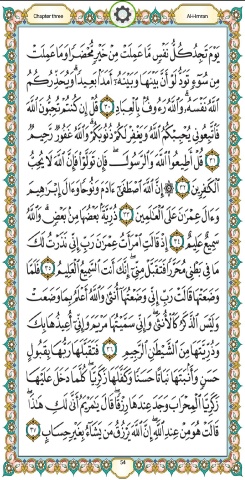 Chapter three Al-Imran
يَوْمَ تَجِدُ كُلُّ نَفْسٍ مَّا عَمِلَتْ مِنْ خَيْرٍ مُّحْضَرًا وَمَا عَمِلَتْ
مِن سُوٓءٍ تَوَدُّ لَوْ أَنَّ بَيْنَهَا وَبَيْنَهُۥٓ أَمَدًۢا بَعِيدًا ۗ وَيُحَذِّرُكُمُ
ٱللَّهُ نَفْسَهُۥ ۗ وَٱللَّهُ رَءُوفٌۢ بِٱلْعِبَادِ ٣٠ قُلْ إِن كُنتُمْ تُحِبُّونَ ٱللَّهَ
فَٱتَّبِعُونِى يُحْبِبْكُمُ ٱللَّهُ وَيَغْفِرْ لَكُمْ ذُنُوبَكُمْ ۗ وَٱللَّهُ غَفُورٌ رَّحِيمٌ
٣١ قُلْ أَطِيعُوا۟ ٱللَّهَ وَٱلرَّسُولَ ۖ فَإِن تَوَلَّوْا۟ فَإِنَّ ٱللَّهَ لَا يُحِبُّ
ٱلْكَٰفِرِينَ ٣٢ ۞ إِنَّ ٱللَّهَ ٱصْطَفَىٰٓ ءَادَمَ وَنُوحًا وَءَالَ إِبْرَٰهِيمَ
وَءَالَ عِمْرَٰنَ عَلَى ٱلْعَٰلَمِينَ ٣٣ ذُرِّيَّةًۢ بَعْضُهَا مِنۢ بَعْضٍ ۗ وَٱللَّهُ
سَمِيعٌ عَلِيمٌ ٣٤ إِذْ قَالَتِ ٱمْرَأَتُ عِمْرَٰنَ رَبِّ إِنِّى نَذَرْتُ لَكَ
مَا فِى بَطْنِى مُحَرَّرًا فَتَقَبَّلْ مِنِّىٓ ۖ إِنَّكَ أَنتَ ٱلسَّمِيعُ ٱلْعَلِيمُ ٣٥ فَلَمَّا
وَضَعَتْهَا قَالَتْ رَبِّ إِنِّى وَضَعْتُهَآ أُنثَىٰ وَٱللَّهُ أَعْلَمُ بِمَا وَضَعَتْ
وَلَيْسَ ٱلذَّكَرُ كَٱلْأُنثَىٰ ۖ وَإِنِّى سَمَّيْتُهَا مَرْيَمَ وَإِنِّىٓ أُعِيذُهَا بِكَ
وَذُرِّيَّتَهَا مِنَ ٱلشَّيْطَٰنِ ٱلرَّجِيمِ ٣٦ فَتَقَبَّلَهَا رَبُّهَا بِقَبُولٍ
حَسَنٍ وَأَنۢبَتَهَا نَبَاتًا حَسَنًا وَكَفَّلَهَا زَكَرِيَّا ۖ كُلَّمَا دَخَلَ عَلَيْهَا
زَكَرِيَّا ٱلْمِحْرَابَ وَجَدَ عِندَهَا رِزْقًا ۖ قَالَ يَٰمَرْيَمُ أَنَّىٰ لَكِ هَٰذَا ۖ
قَالَتْ هُوَ مِنْ عِندِ ٱللَّهِ ۖ إِنَّ ٱللَّهَ يَرْزُقُ مَن يَشَآءُ بِغَيْرِ حِسَابٍ ٣٧
54